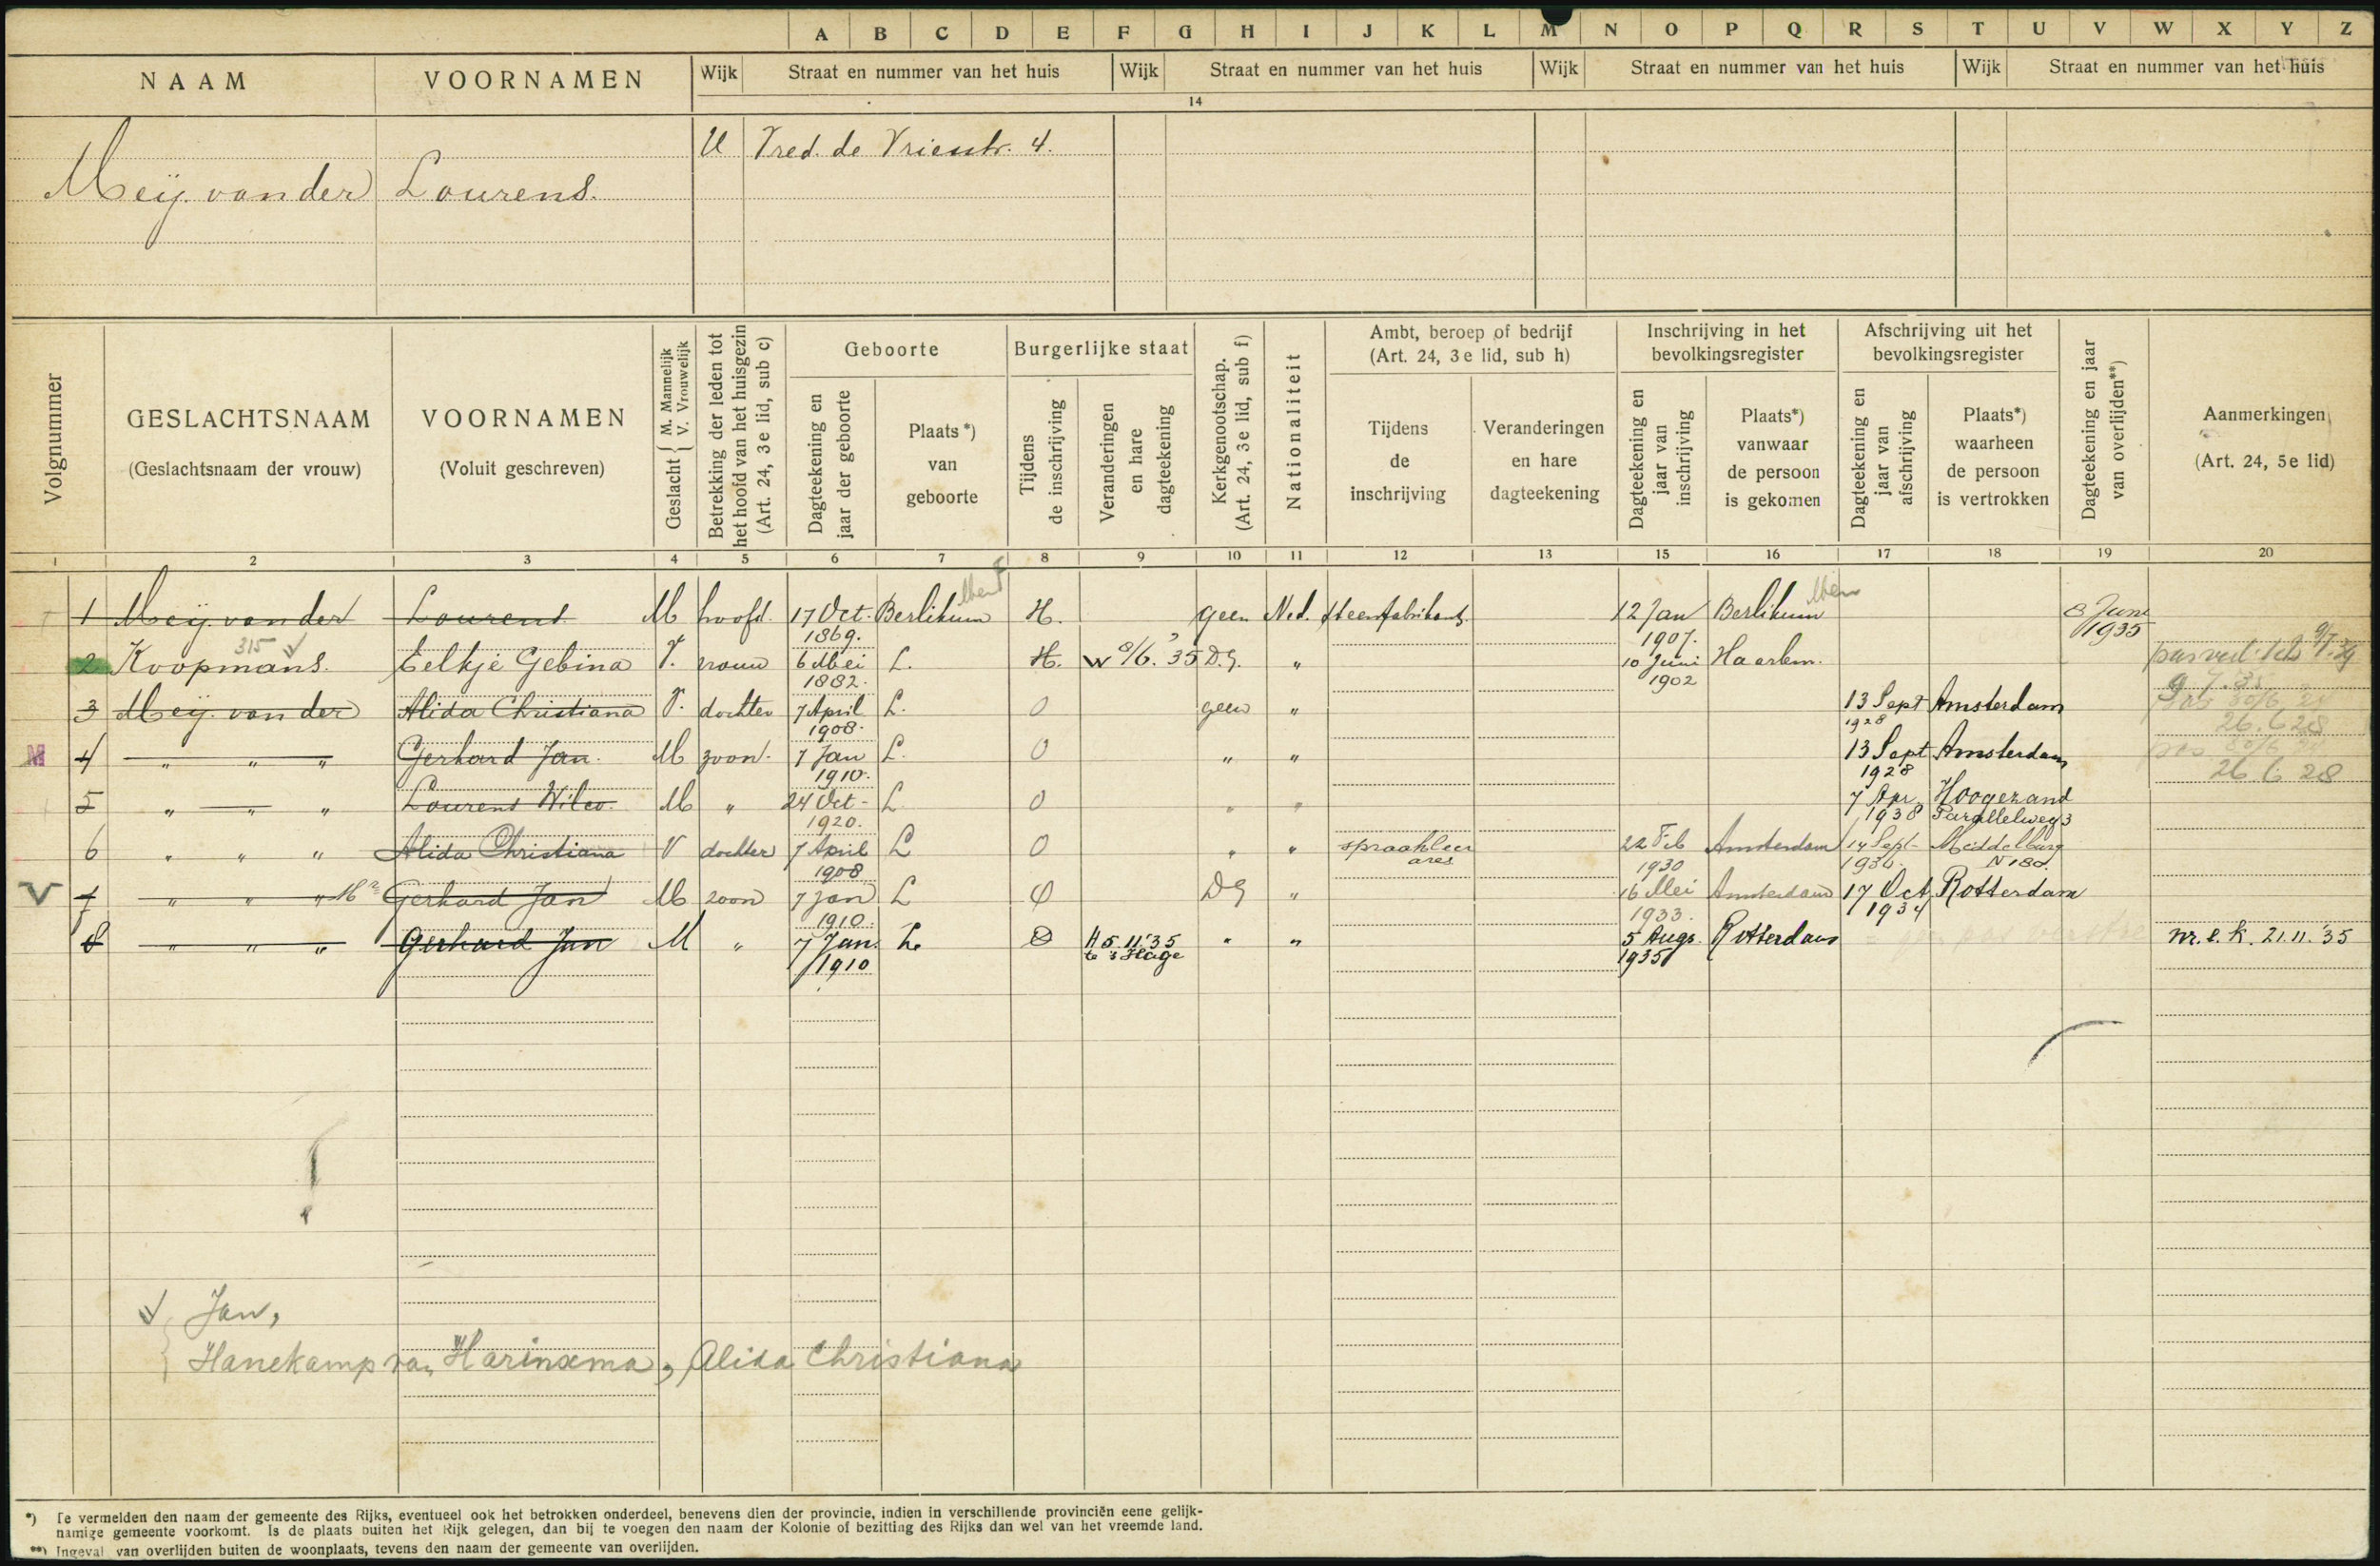 A B C D E F G H I J K L M N O P Q R S T U V W X Y Z
NAAM VOORNAMEN Wijk Straat en nummer van het huis Wijk Straat en nummer van het huis Wijk Straat en nummer van het huis Wijk Straat en nummer van het huis
14
U Fred. de Vriesstr. 4.
Meij. van der Lourens.
Volgnummer
GESLACHTSNAAM
(Geslachtsnaam der vrouw)
VOORNAMEN
(Voluit geschreven)
Geslacht { M. Mannelijk V. Vrouwelijk
Betrekking der leden tot
het hoofd van het huisgezin
(Art. 24, 3e lid, sub c)
Geboorte
Dagteekening en
jaar der geboorte
Plaats *)
van
geboorte
Burgerlijke staat
Tijdens
de inschrijving
Veranderingen
en hare
dagteekening
Kerkgenootschap.
(Art. 24, 3e lid, sub f)
Nationaliteit
Ambt, beroep of bedrijf
(Art. 24, 3e lid, sub h)
Tijdens
de
inschrijving
Veranderingen
en hare
dagteekening
Inschrijving in het
bevolkingsregister
Dagteekening en
jaar van
inschrijving
Plaats*)
vanwaar
de persoon
is gekomen
Afschrijving uit het
bevolkingsregister
Dagteekening en
jaar van
afschrijving
Plaats*)
waarheen
de persoon
is vertrokken
Dagteekening en jaar
van overlijden**)
Aanmerkingen
(Art. 24, 5e lid)
1 2 3 4 5 6 7 8 9 10 11 12 13 15 16 17 18 19 20
1 Meij. van der Lourens M hoofd. 17 Oct. Berlikum H. geen Ned. steenfabrikant 12 Jan Berlikum 8 Juni
1869. 1907. 1935
315
2 Koopmans. Eelkje Gebina V. vrouw 6 Mei L. H. W 8/6. '35 D.G. " 10 Juni Haarlem.
1882. 1902
3 Meij. van der Alida Christiana V. dochter 7 April L. O geen " 13 Sept Amsterdam
1908. 1928 26.6 28
M 4 " " " Gerhard Jan. M zoon. 7 Jan L. O " " 13 Sept Amsterdam
1910. 1928 26 6 28
5 " " " Lourens Wilco. M " 24 Oct - L O " " 7 Apr. Hoogezand
1920. 1938 Parallelweg 3
6 " " " Alida Christiana V dochter 7 April L O " " spraakleer 22 Feb Amsterdam 14 Sept - Middelburg
1908 ares 1930 1936. N 180.
V 7 " " " Gerhard Jan M zoon 7 Jan L O DG " 16 Mei Amsterdam 17 Oct Rotterdam
1910. 1933. 1934
8 " " " Gerhard Jan M " 7 Jan. L. O H 5.11.'35 " " 5 Augs. Rotterdam nr. e. k. 21.11.'35
1910 te 's Hage 1935
Jan,
Hanekamp van Harinxma, Alida Christiana
*) Te vermelden den naam der gemeente des Rijks, eventueel ook het betrokken onderdeel, benevens dien der provincie, indien in verschillende provinciën eene gelijk-
namige gemeente voorkomt. Is de plaats buiten het Rijk gelegen, dan bij te voegen den naam der Kolonie of bezitting des Rijks dan wel van het vreemde land.
**) Ingeval van overlijden buiten de woonplaats, tevens den naam der gemeente van overlijden.